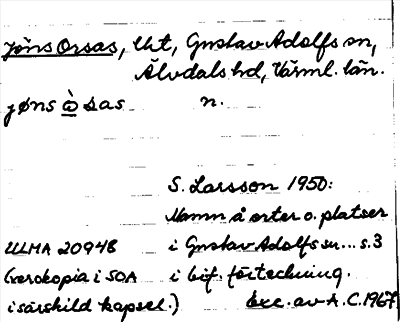 Jöns Orsas, Uht, Gustav Adolfs sn,
Älvdals hd, Värml. län.
jøns ò sas n.
S. Larsson 1950:
Namn å orter o. platser
ULMA 20948 i Gustav Adolfs sn... s.3
(xerokopia i SOA i bif. förteckning.
i särskild kapsel.) Exc. av A.C. 1967